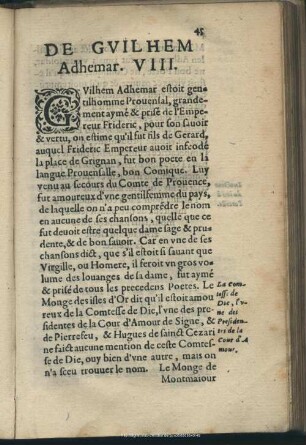 45
DE GVILHEM
Adhemar. VIII.
GVilhem Adhemar estoit gen-
tilhomme Prouensal, grande-
ment aymé & prisé de l'Empe-
reur Frideric, pour son sauoir
& vertu, on estime qu'il fut fils de Gerard,
auquel Frideric Empereur auoit infeodé
la place de Grignan, fut bon poete en la
langue Prouensalle, bon Comique. Luy
venu au secours du Comte de Prouence,
fut amoureux d'vne gentilfemme du pays,
de laquelle on n'a peu comprédre le nom
en aucune de ses chansons, quelle que ce
fut deuoit estre quelque dame sage & pru-
dente, & de bon sauoir. Car en vne de ses
chansons dict, que s'il estoit si sauant que
Virgille, ou Homere, il feroit vn gros vo-
lume des louanges de sa dame, fut aymé
& prisé de tous les precedens Poetes. Le
Monge des isles d'Or dit qu'il estoit amou
reux de la Comtesse de Die, l'vne des pre-
sidentes de la Cour d'Amour de Signe, &
de Pierrefeu, & Hugues de sainct Cezari
ne faict aucune mention de ceste Comtes-
se de Die, ouy bien d'vne autre, mais on
n'a sceu trouuer le nom. Le Monge de
Montmaiour
La Com-
tesse de
Die, l'v-
ne des
Presiden-
tes de la
Cour d'A
mour.